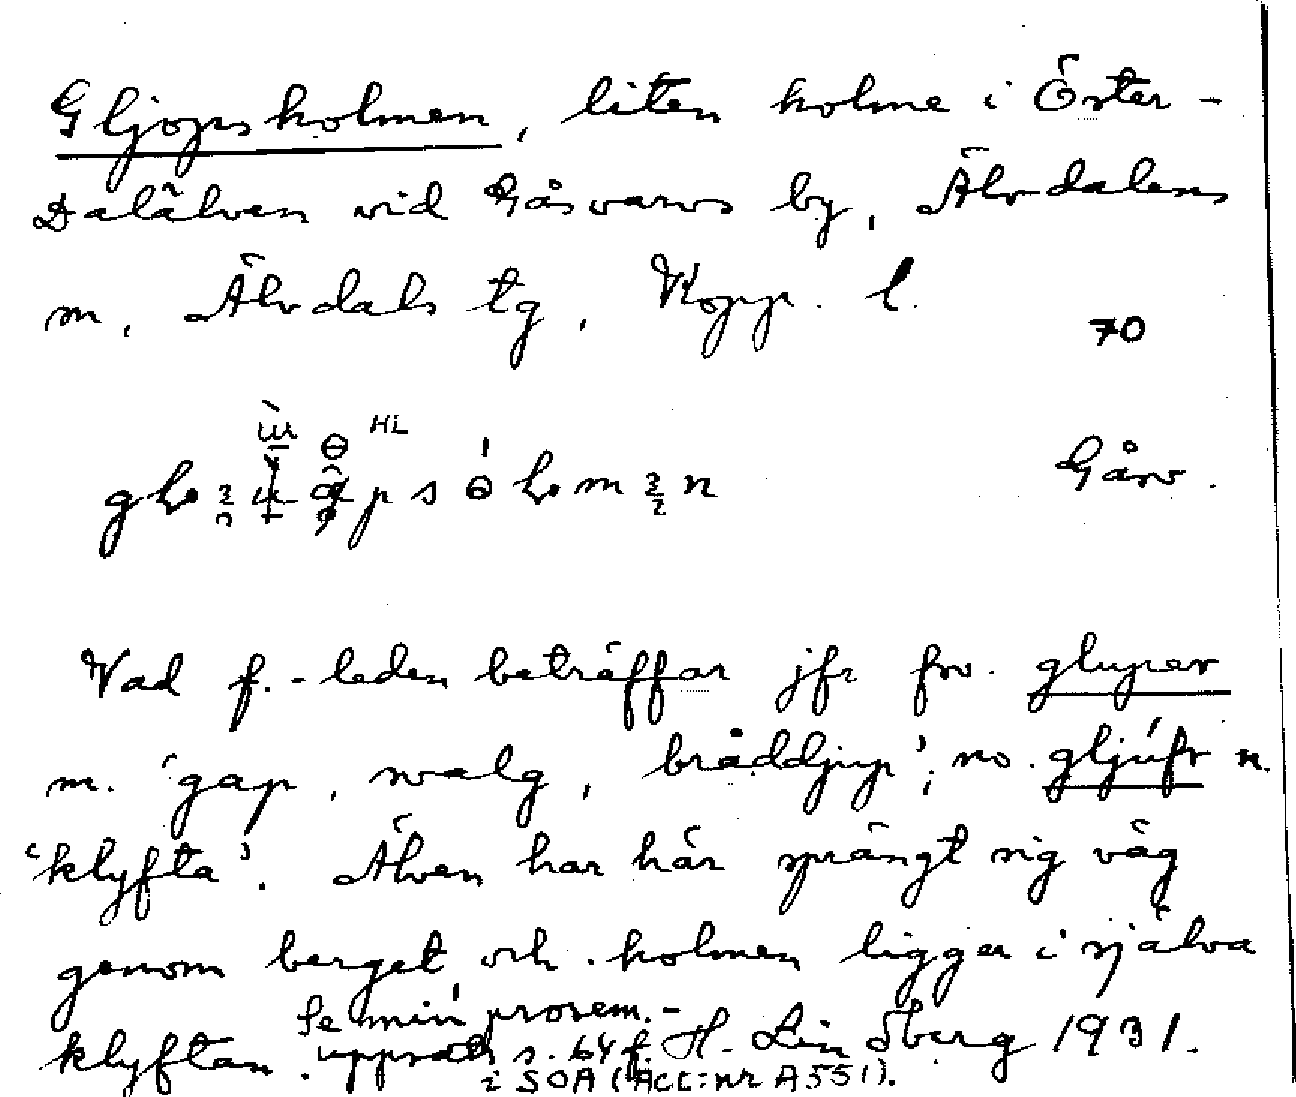 Gljopsholmen, liten holme i Öster-
Dalälven vid Gåsvarvs by, Älvdalens
m, Älvdals tg, Kopp. l.
70
HL
Gåsv.
Vad f.-leden beträffar jfr fsv. gluper
m. 'gap, svalg, bråddjup'; no. gljúfr n.
'klyfta'. Älven har här sprängt sig väg
genom berget och holmen ligger i själva
klyftan. Se min provem.-
uppsats s. 64 f. H. Lindberg 1931.
i SOA (Acc:nr A 551).